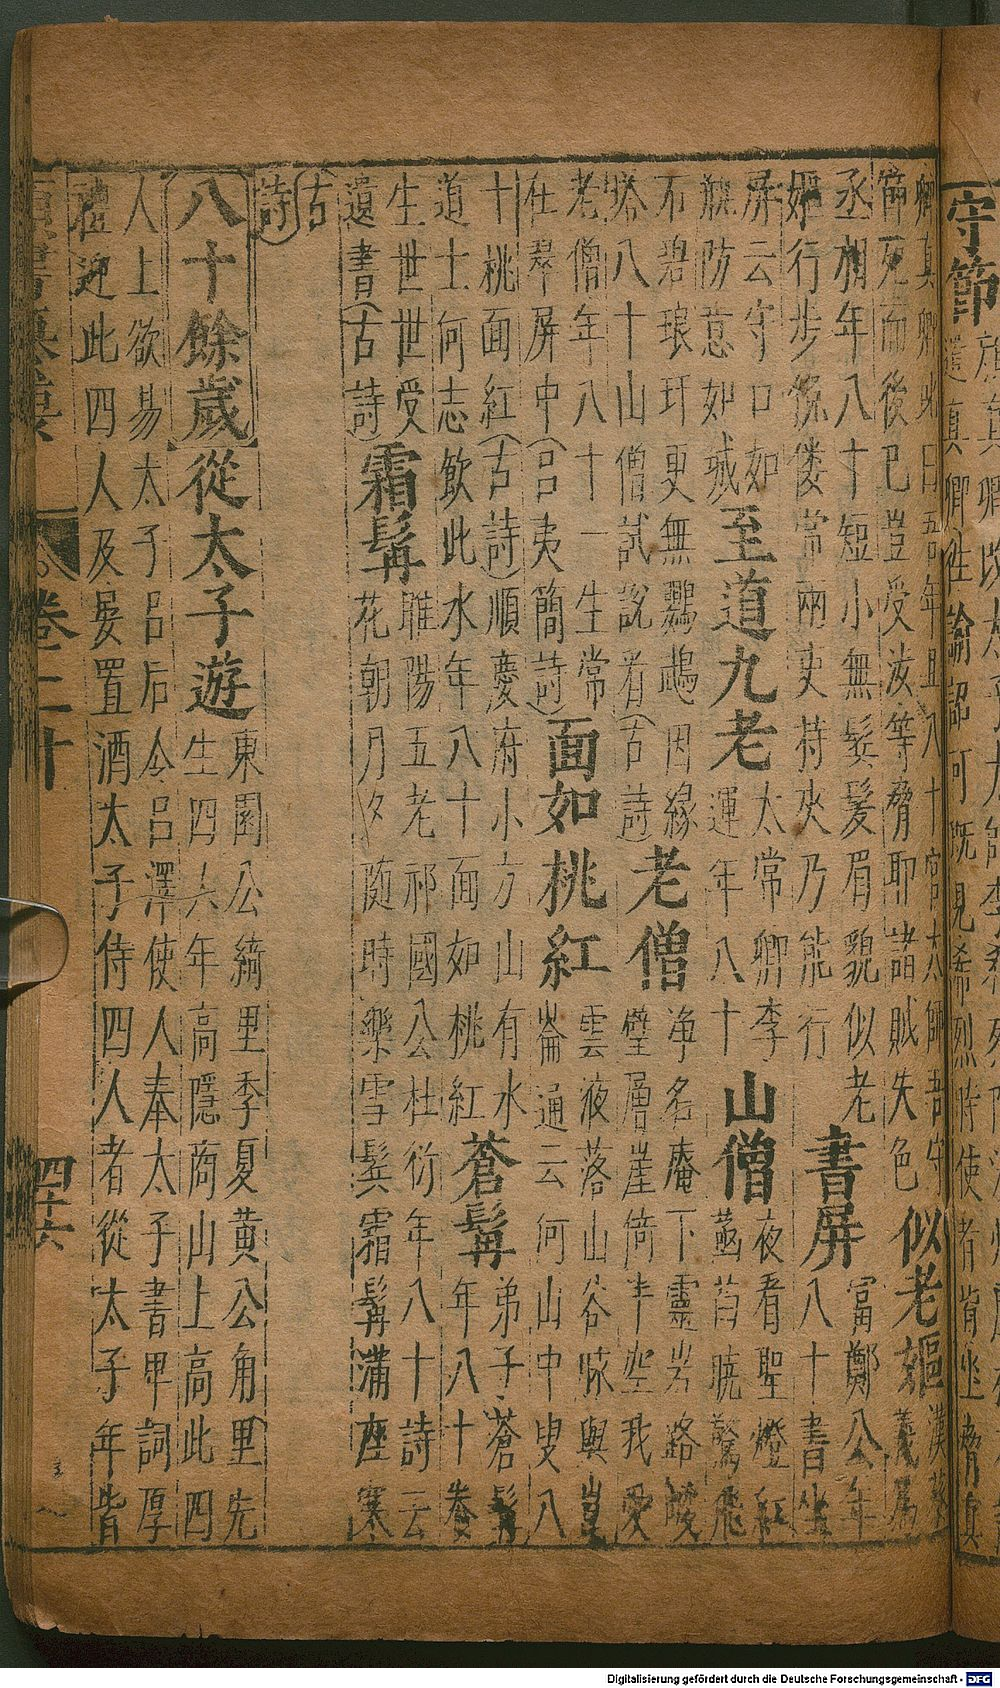 守節
遣真卿往諭詔可既見希烈時使者皆坐脅真
卿真卿叱曰吾年且八十官太師吾守
節死而後已豈受汝等脅耶諸賊失色
似老嫗
漢蔡
義爲
丞相年八十短小無鬚髮眉貌似老
嫗行步俛僂常兩吏持夾乃能行
書屏
富鄭公年
八十書坐
屏云守口如
瓶防意如城
至道九老
太常卿李
運年八十
山僧
夜看聖燈紅
菡萏曉驚飛
不碧琅玕更無鸚鵡因緣
塔八十山僧試説看(古詩)
老僧
淨名庵下靈岩路峻
壁層崖倚半空我愛
老僧年八十一生常
在翠屏中(呂夷簡詩)
面如桃紅
雲液落山谷味與崑
崙通云何山中叟八
十桃面紅(古詩)順慶府小方山有水
道士何志飲此水年八十面如桃紅
蒼髯
弟子蒼髯
年八十養
生世世受
遺書(古詩)
霜髯
睢陽五老祁國公杜衍年八十詩云
花朝月夕随時樂雪鬓霜髯滿座寒
(古
詩)
八十餘歲
從太子遊
東園公綺里季夏黄公角里先
生四人年高隱商山上高此四
人上欲易太子呂后令呂澤使人奉太子書卑詞厚
禮迎此四人及宴置酒太子侍四人者從太子年皆
卷二十
四十六
Digitalisierung gefördert durch die Deutsche Forschungsgemeinschaft - DFG